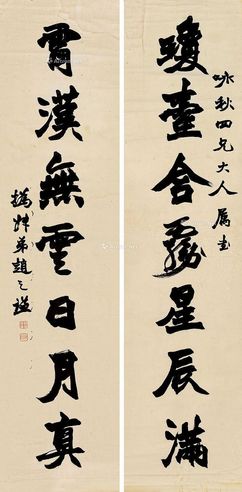 咏秋四兄大人 屬書
瓊臺含霧星辰滿
霄漢無雲日月真
撝叔弟趙之謙